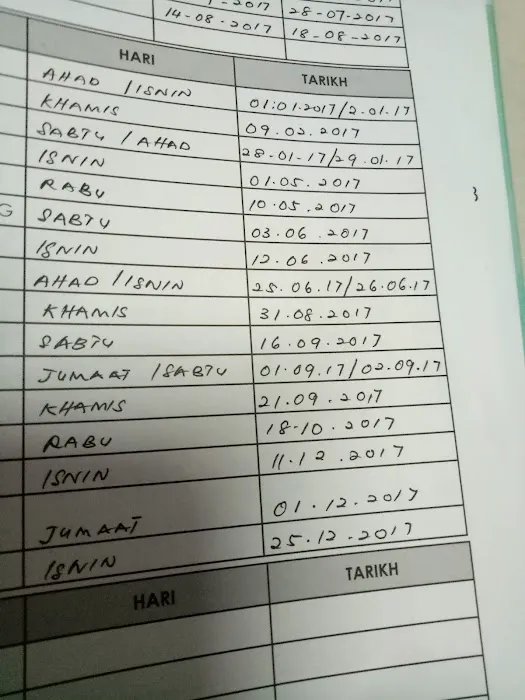 2017 28-07-2017
14-08-2017 18-08-2017
HARI TARIKH
AHAD / ISNIN 01.01.2017/2.01.17
KHAMIS 09.02.2017
SABTU / AHAD 28-01-17/29.01.17
ISNIN 01.05.2017
RABU 10.05.2017
G SABTU 03.06.2017
ISNIN 12.06.2017
AHAD / ISNIN 25.06.17/26.06.17
KHAMIS 31.08.2017
SABTU 16.09.2017
JUMAAT / SABTU 01.09.17/02.09.17
KHAMIS 21.09.2017
RABU 18-10.2017
ISNIN 11.12.2017
JUMAAT 01.12.2017
ISNIN 25.12-2017
HARI TARIKH